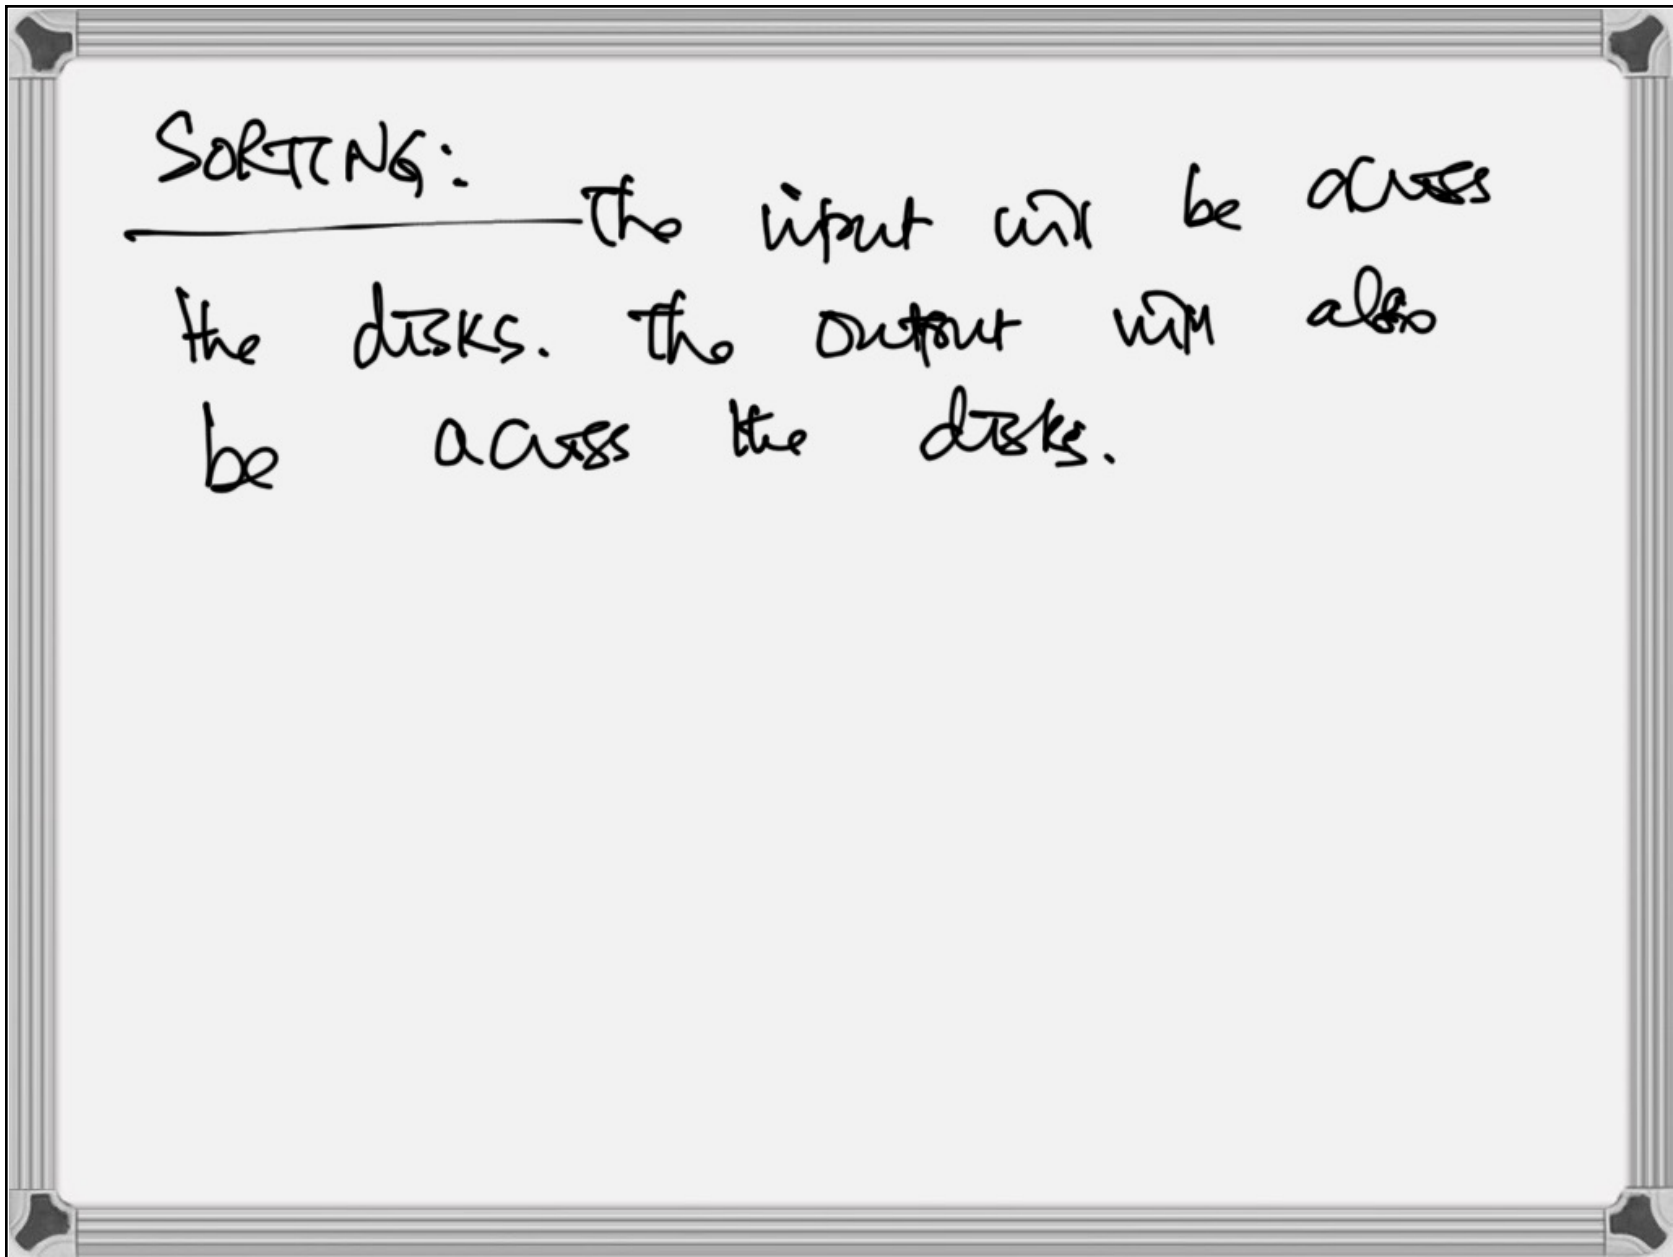 SORTING:
The input will be across
the disks. The output will also
be across the disks.